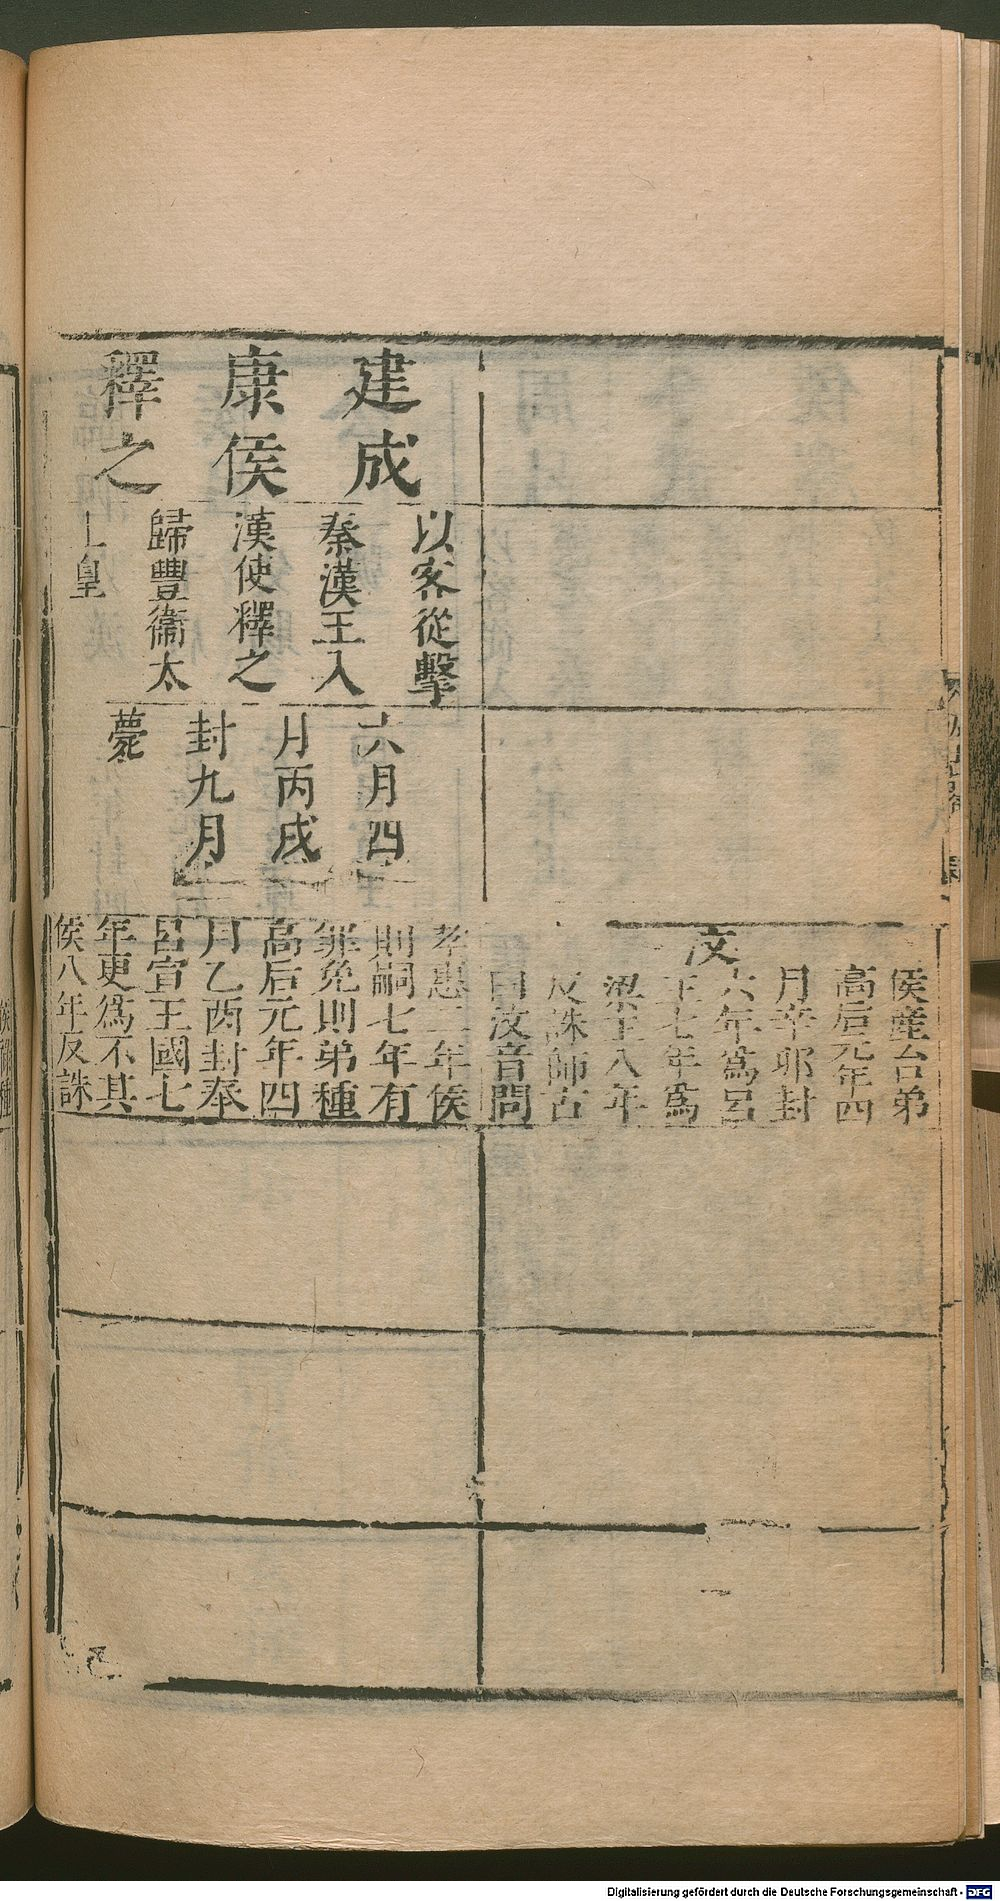 建成
康侯
釋之
以客從擊
秦漢王入
漢使釋之
歸豐衞太
上皇
六月四
月丙戌
封九月
薨
侯產台弟
高后元年四
月辛卯封
六年爲呂
王七年爲
梁王八年
反誅師古
曰汶音問
汶
孝惠二年侯
則嗣七年有
罪免則弟種
高后元年四
月乙酉封奉
呂宣王國七
年更爲不其
侯八年反誅
Digitalisierung gefördert durch die Deutsche Forschungsgemeinschaft - DFG